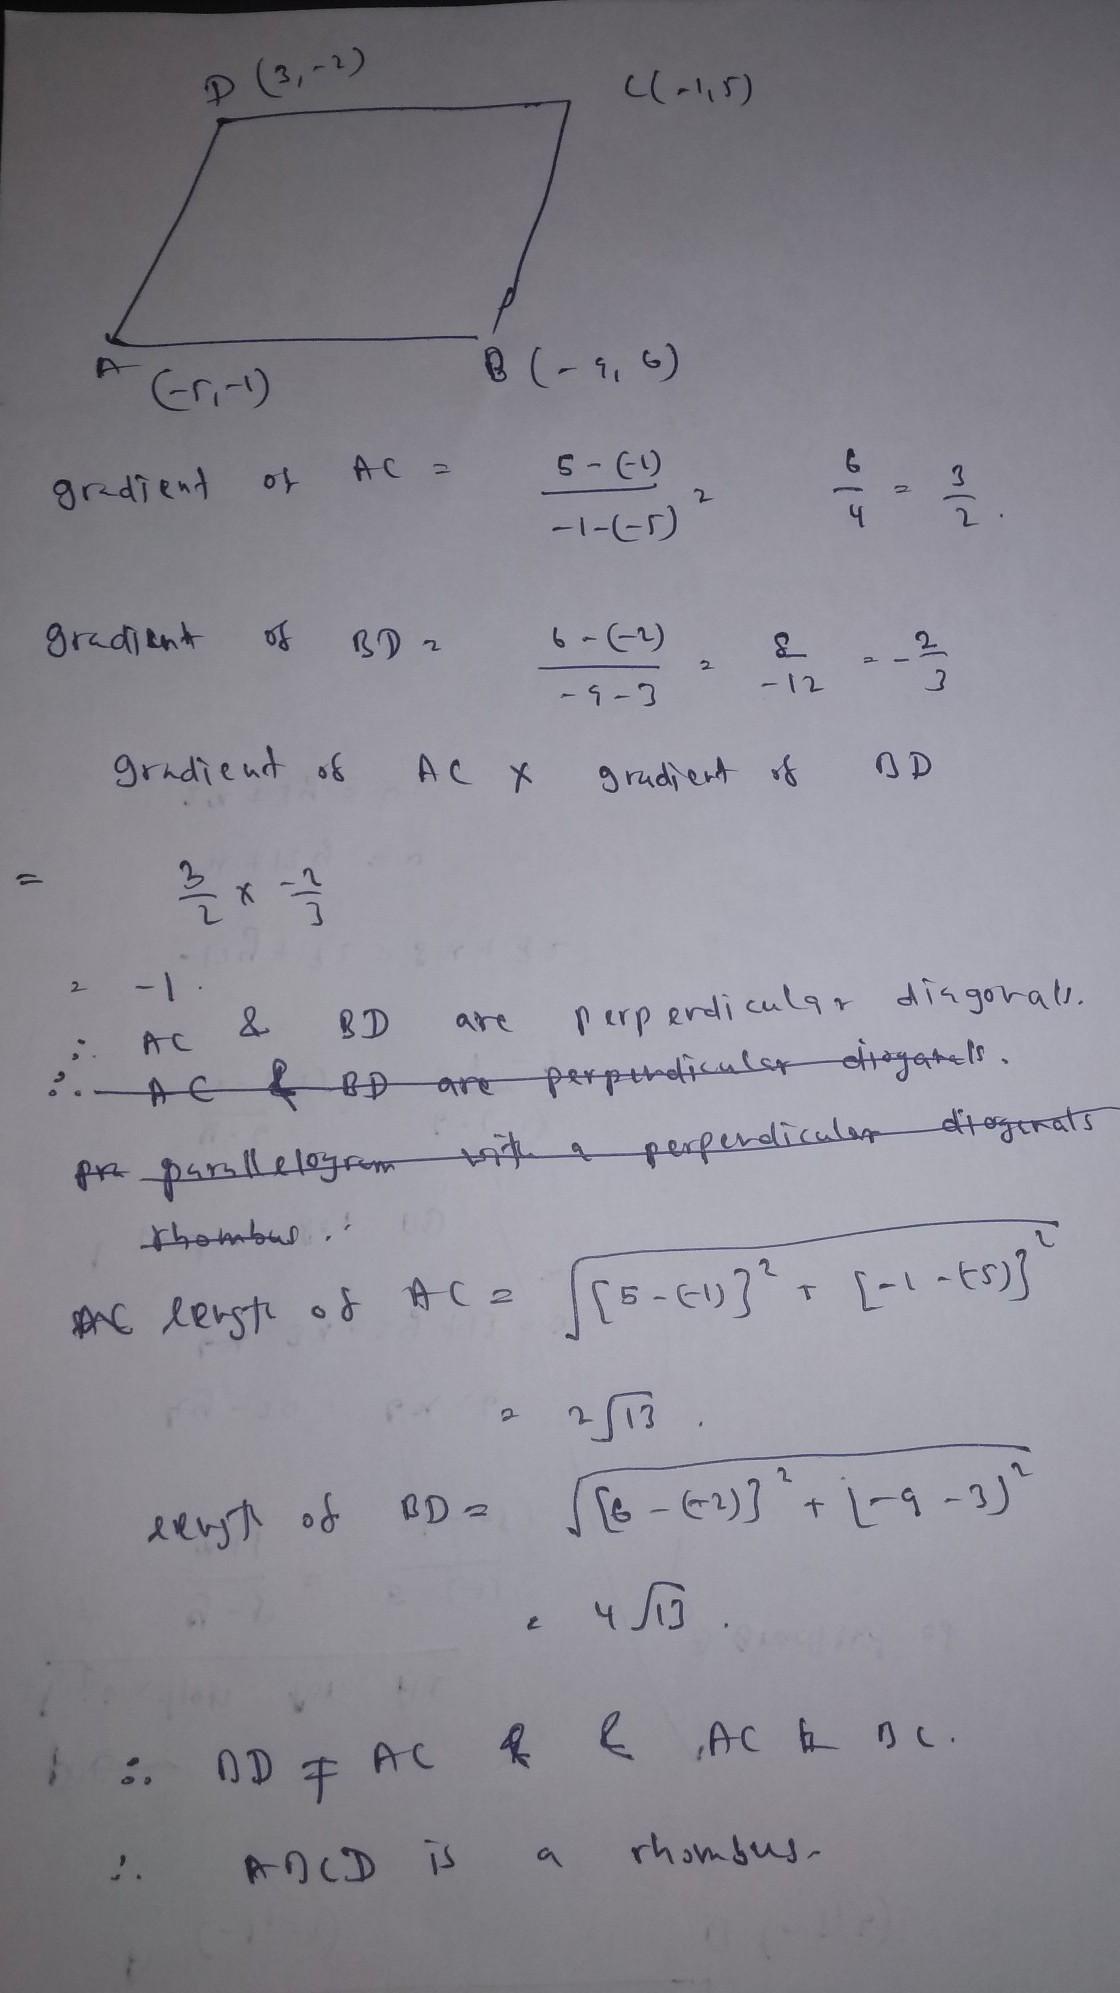 D (3,-2)
C(-1,5)
A (-5,-1)
B (-9, 6)
gradient of AC = 5-(-1) / -1-(-5) = 6/4 = 3/2.
gradient of BD = 6-(-2) / -9-3 = 8/-12 = -2/3
gradient of AC x gradient of BD
= 3/2 x -2/3
= -1.
∴ AC & BD are perpendicular diagonals.
∴ AC & BD are perpendicular diogonals.
parallelogram with a perpendicular diogonals
rhombus.
length of AC = √[5-(-1)]² + [-1-(-5)]²
= 2√13.
length of BD = √[6-(-2)]² + [-9-3)²
= 4√13.
∴ BD ≠ AC & AC ⊥ BC.
∴ ABCD is a rhombus.